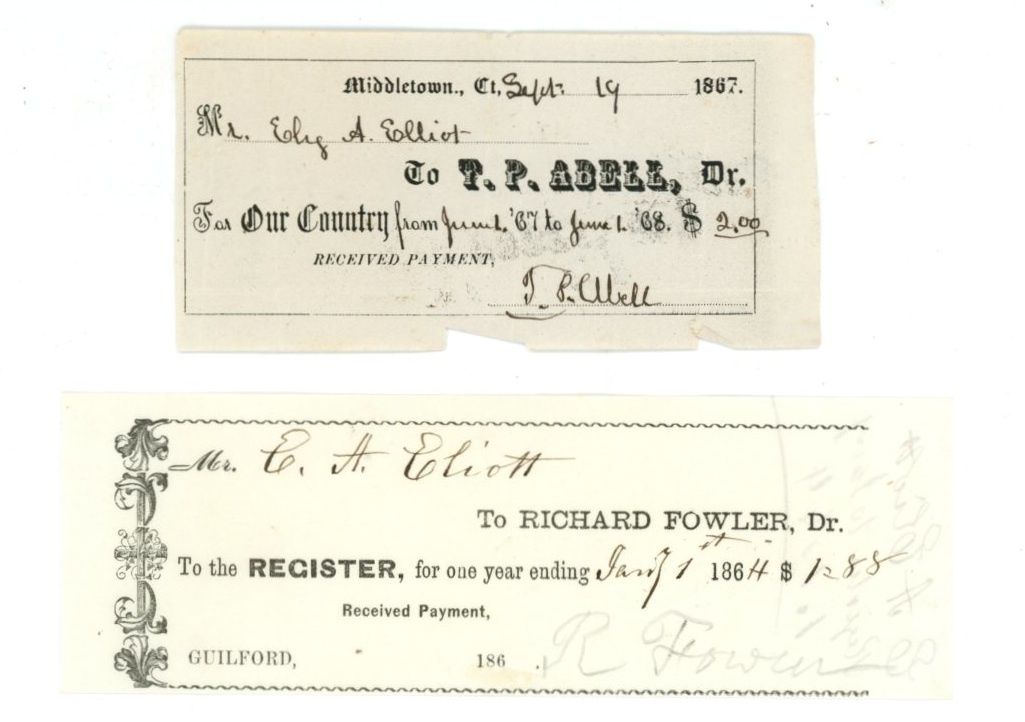 Middletown., Ct, Sept. 19 1867.
Mr. Elig A. Elliot
To T. P. ABELL, Dr.
For Our Country from June 1. '67 to June 1. '68. $ 2.00
RECEIVED PAYMENT,
T. P. Abell
Mr. E. A. Eliott
To RICHARD FOWLER, Dr.
To the REGISTER, for one year ending Jany 1st 1864 $ 1.88
Received Payment,
GUILFORD, 186 . R Fowler